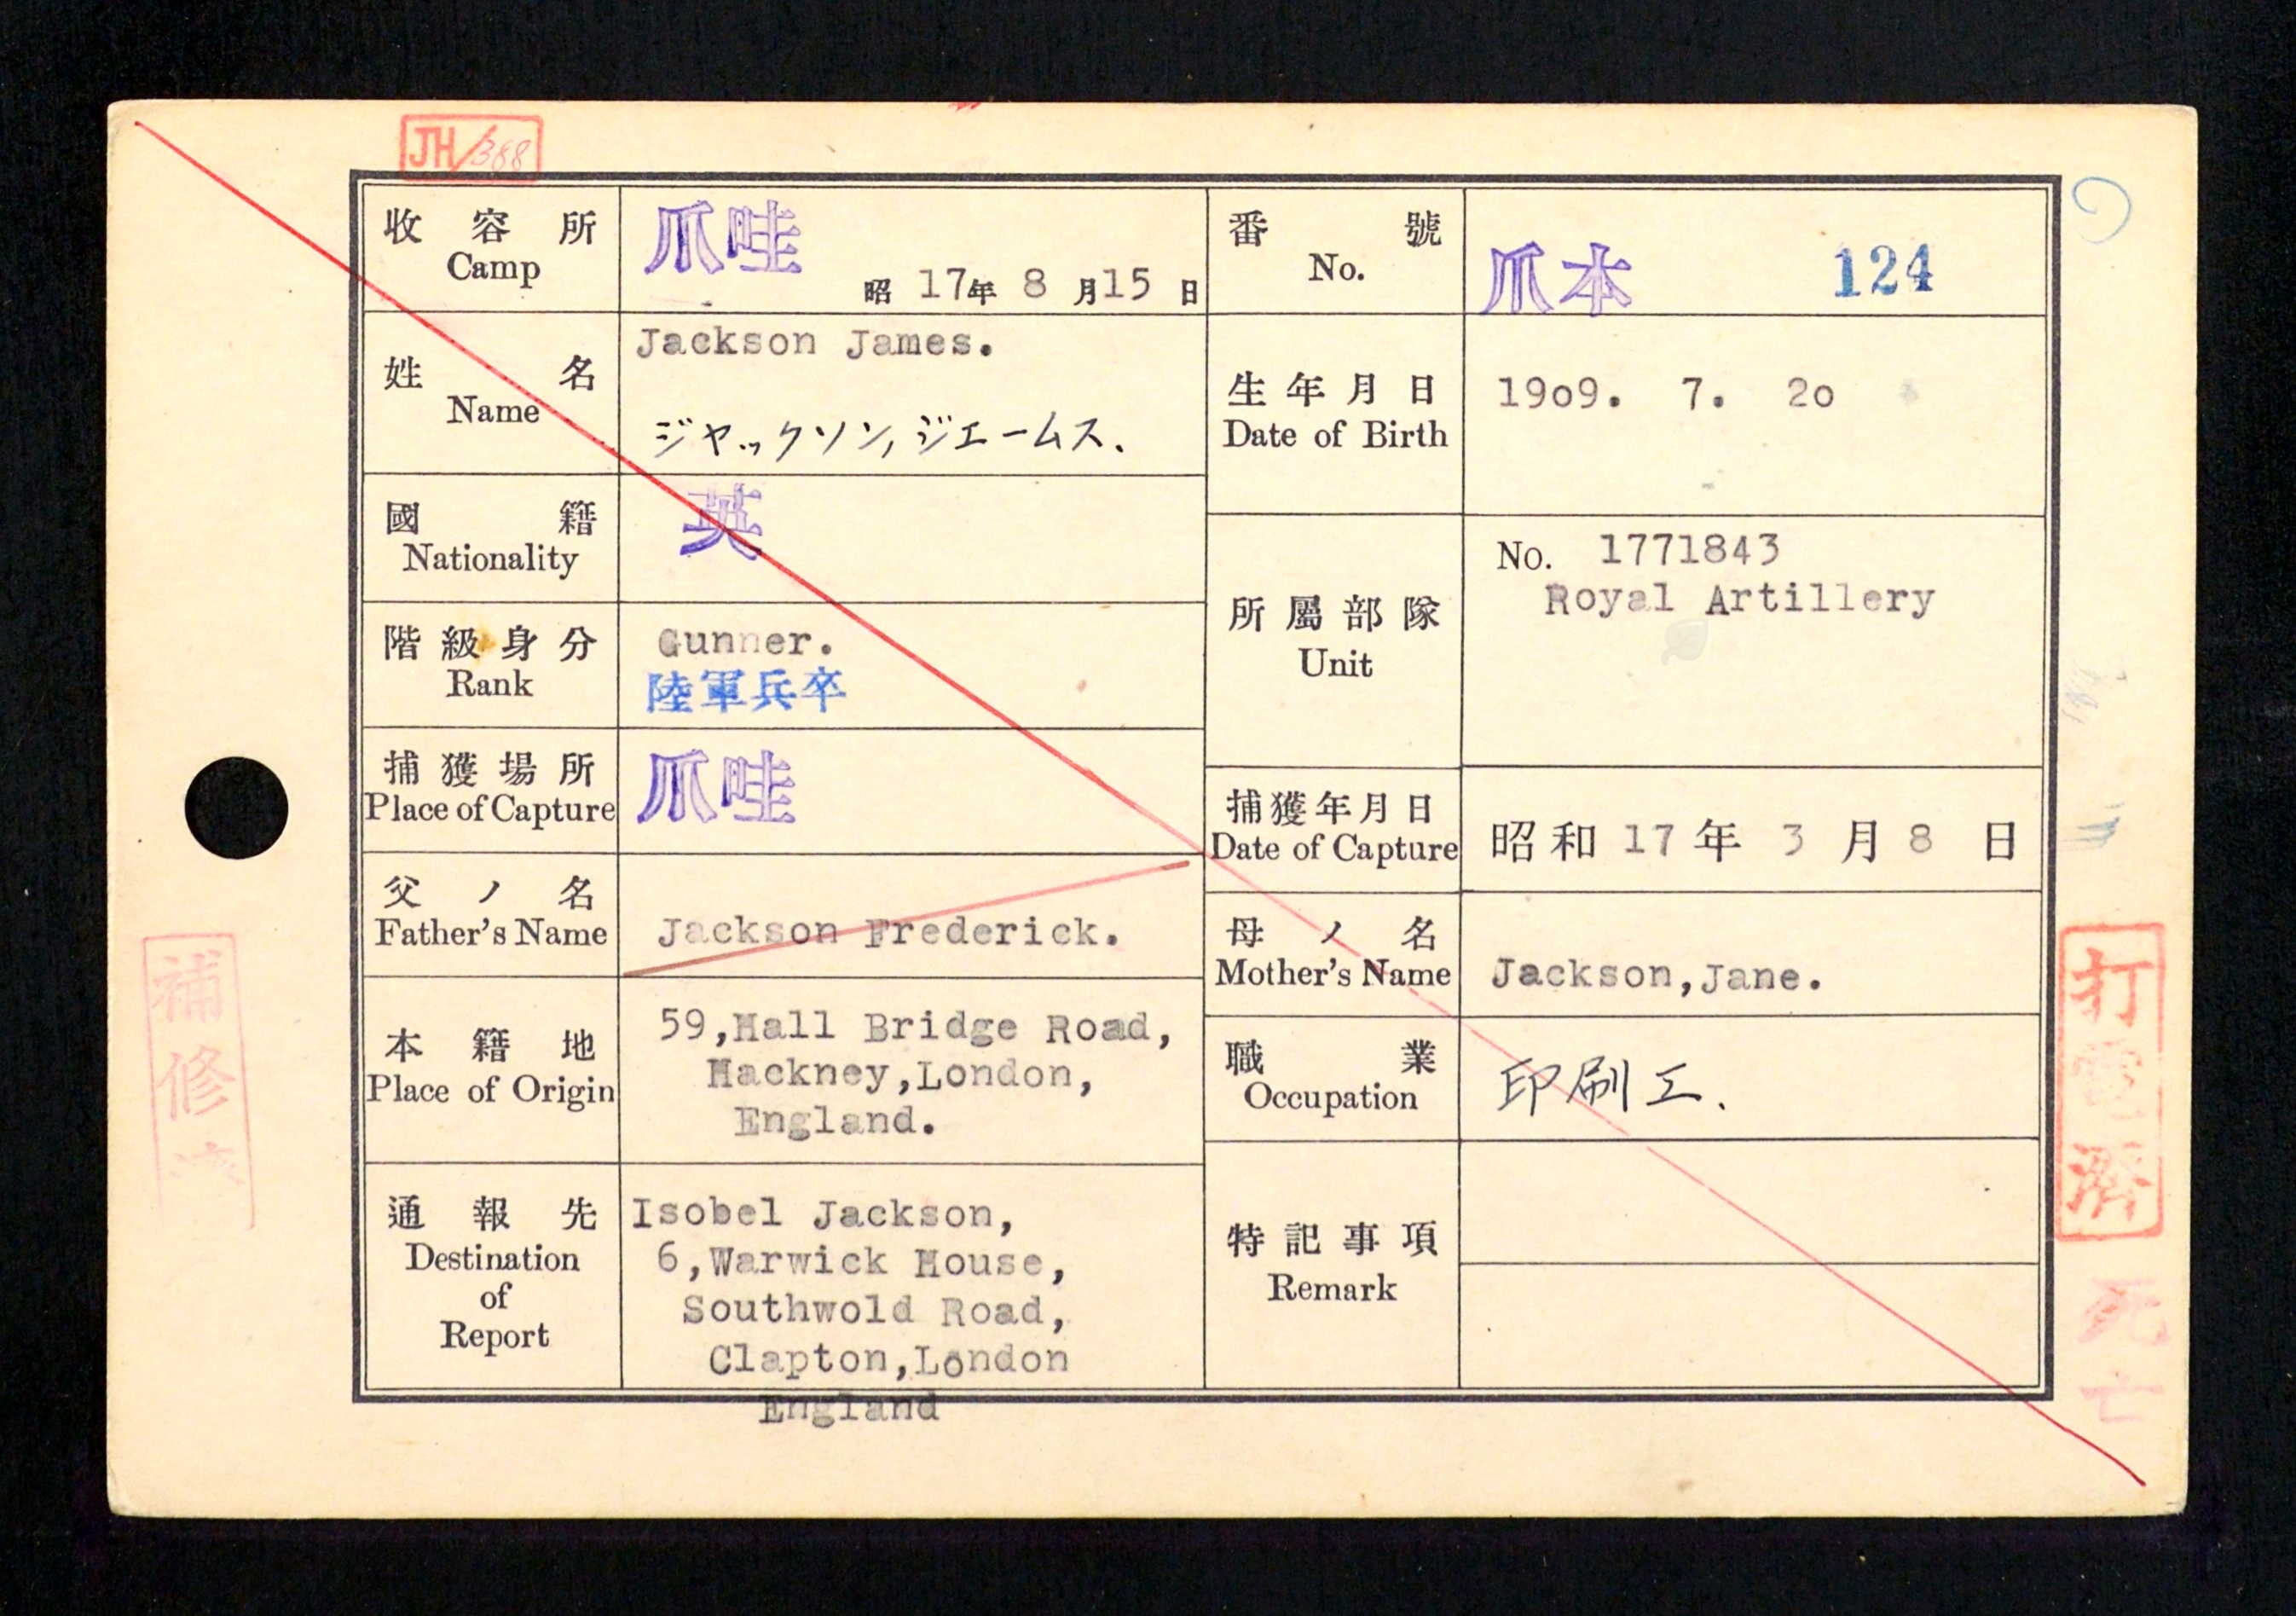 JH/388
收容所
Camp
爪哇
昭 17年 8月15日
番號
No.
爪本 124
姓名
Name
Jackson James.
ジャックソン, ジェームス.
生年月日
Date of Birth
19o9. 7. 2o
國籍
Nationality
英
所屬部隊
Unit
No. 1771843
Royal Artillery
階級身分
Rank
Gunner.
陸軍兵卒
捕獲場所
Place of Capture
爪哇
捕獲年月日
Date of Capture
昭和 17年 3月 8日
父ノ名
Father's Name
Jackson Frederick.
母ノ名
Mother's Name
Jackson,Jane.
本籍地
Place of Origin
59,Hall Bridge Road,
Hackney,London,
England.
職業
Occupation
印刷工.
通報先
Destination
of
Report
Isobel Jackson,
6,Warwick House,
Southwold Road,
Clapton,London
England
特記事項
Remark
補修済
打電濟
死亡